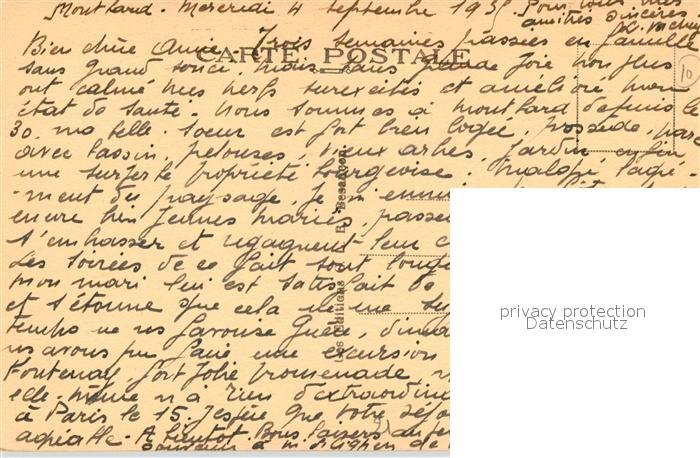 Montbard. Mercredi 4 septembre 1935
Pour tous mes
amitiés sincères
CARTE POSTALE
Bien chère Amie. Trois semaines passées en famille
sans grand souci mais sans grande joie non plus
ont calmé mes nerfs surexcités et amélioré mon
état de santé. Nous sommes à Montbard depuis
30. ma belle-soeur est fort bien logée, possède, parc
avec bassin, pelouses, vieux arbres, jardin enfin
une superbe propriété bourgeoise. Malgré l'agré-
ment du paysage, je m'ennuie
encore bien jeunes mariés, passe
s'embrasser et regagnent leur c
Les soirées de ce fait sont longu
mon mari lui est satisfait de
et s'étonne que cela ne me su
temps ne ns favorise guère, dima
ns avons pu faire une excursion
Fontenay, fort jolie promenade
elle-même n'a rien d'extraordin
à Paris le 15. J'espère que votre séjo
agréable. A bientôt. Bons baisers
Les Editions
Besançon
10
privacy protection
Datenschutz